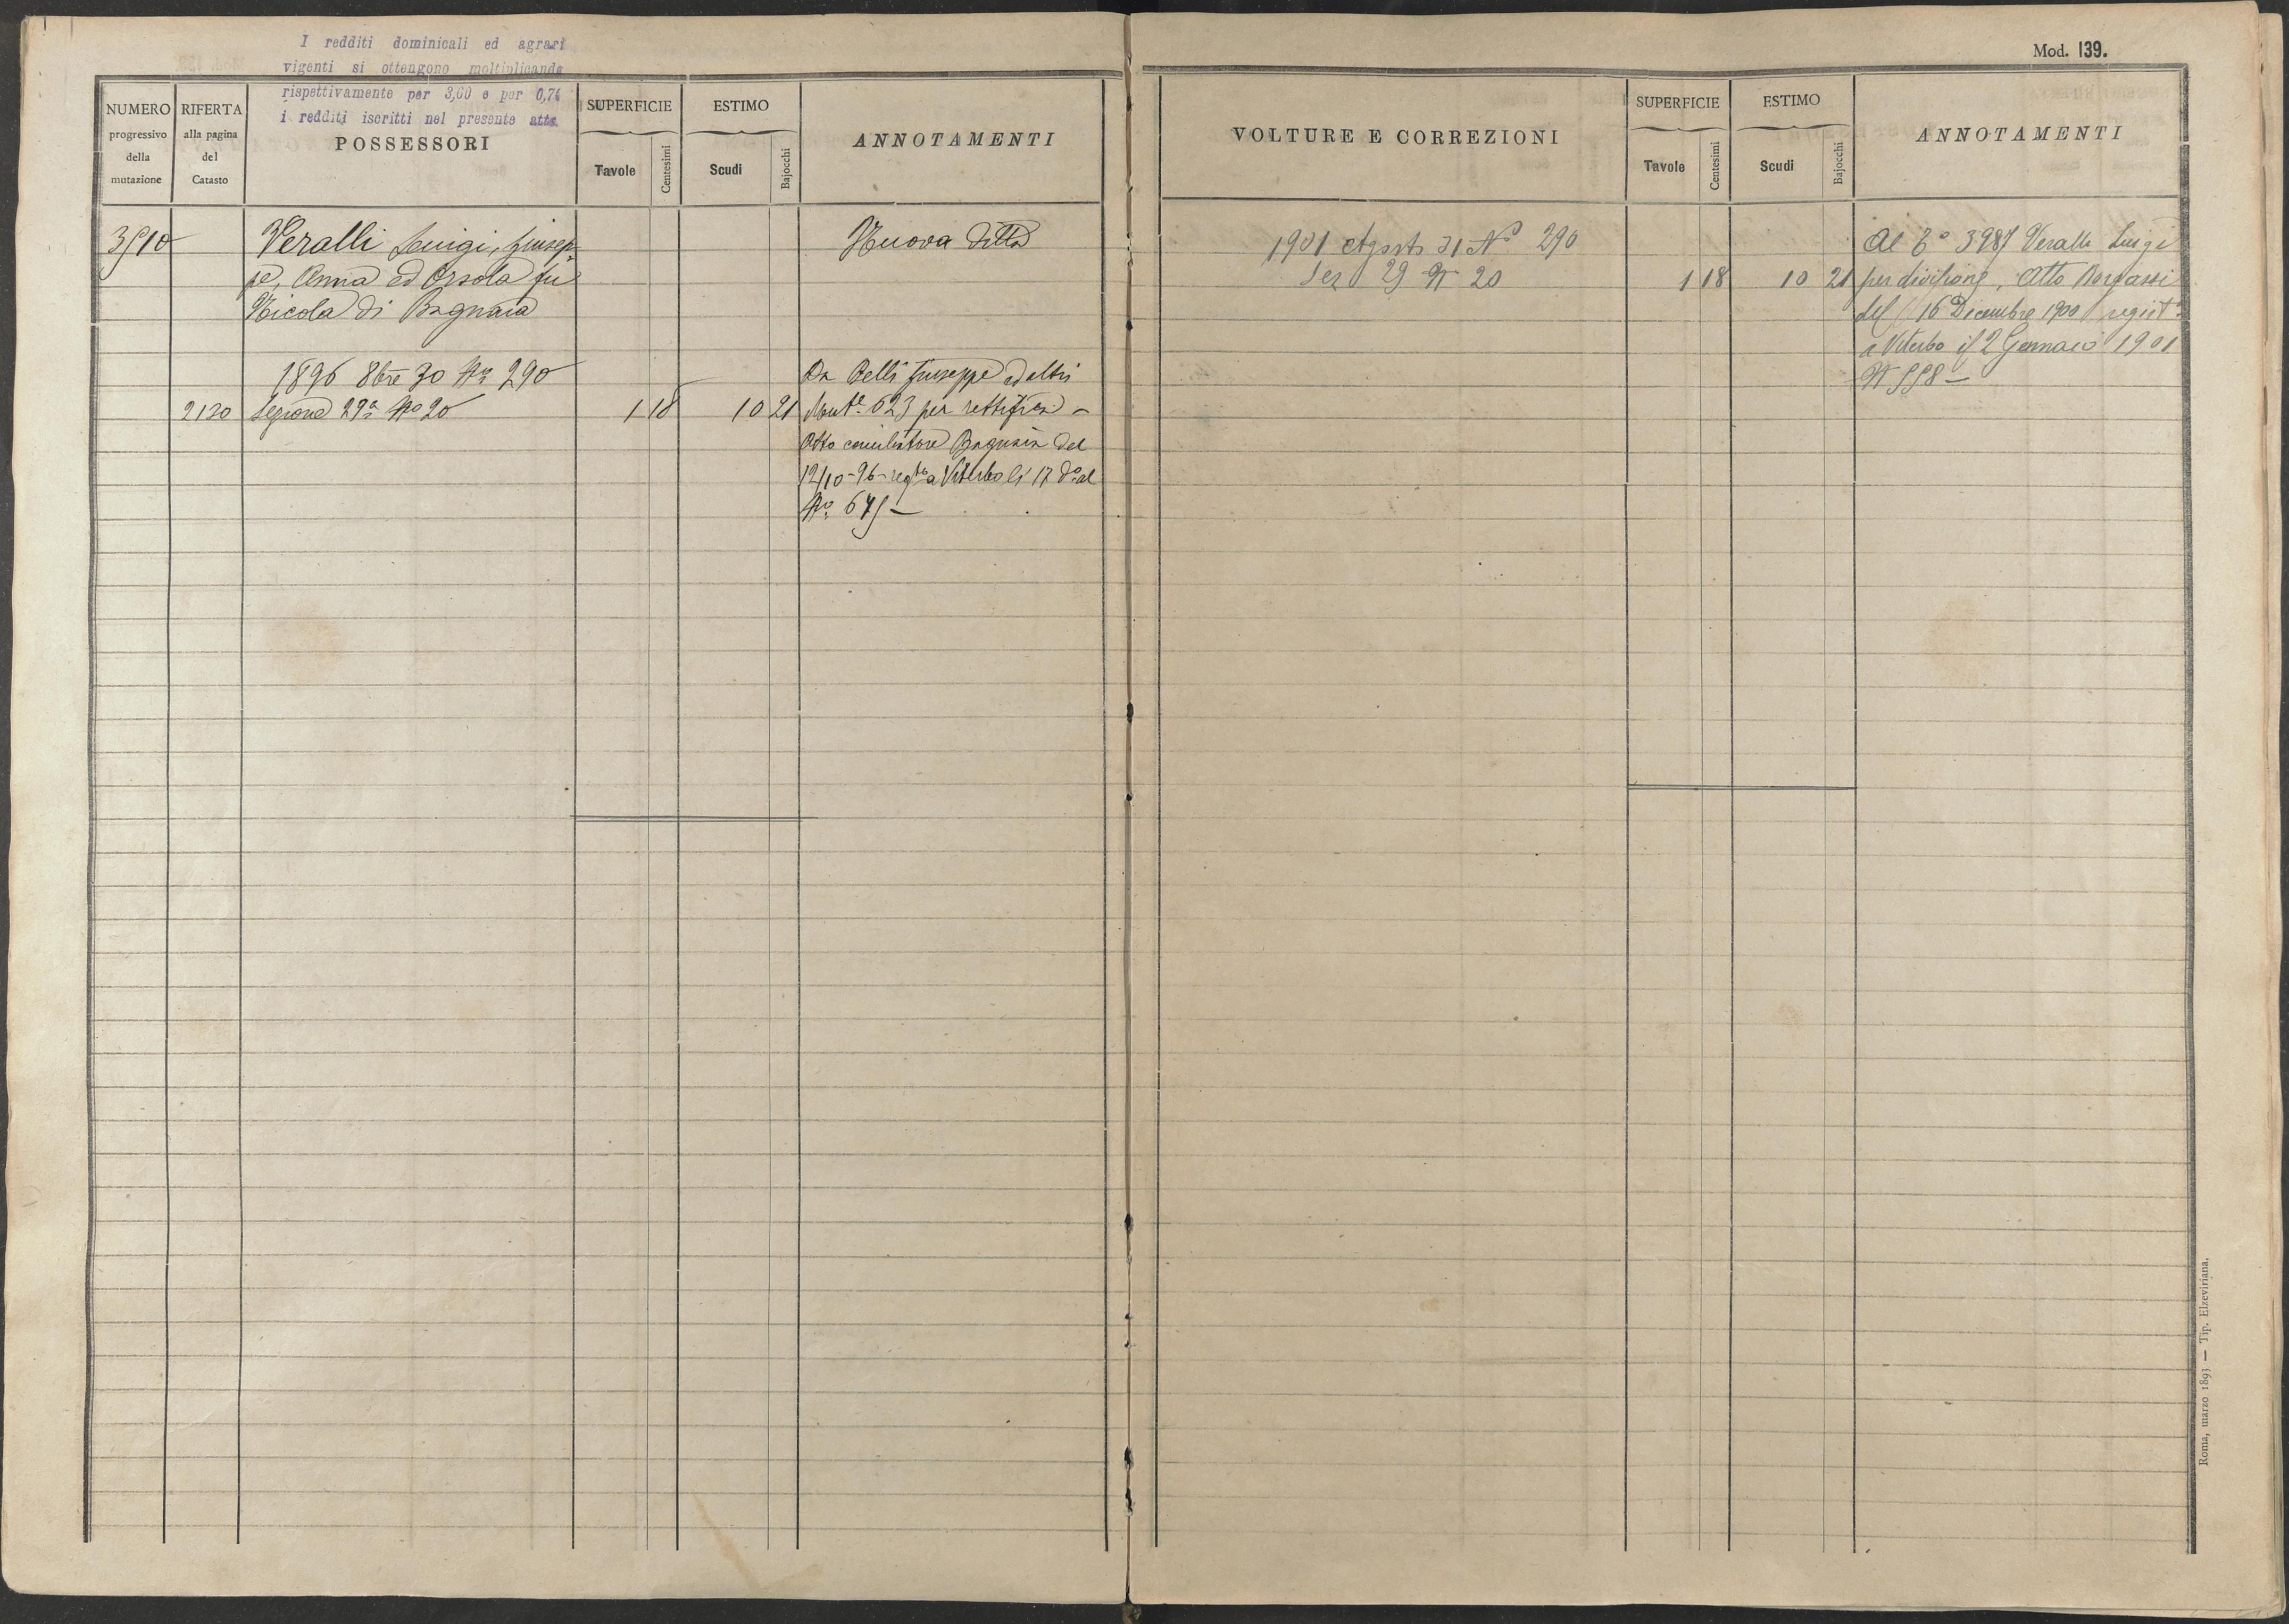 I redditi dominicali ed agrari
vigenti si ottengono moltiplicando
rispettivamente per 3,60 e per 0,74
i redditi iscritti nel presente atto.
NUMERO
progressivo
della
mutazione
RIFERTA
alla pagina
del
Catasto
POSSESSORI
SUPERFICIE
Tavole
Centesimi
ESTIMO
Scudi
Bajocchi
ANNOTAMENTI
3510
Veralli Luigi, Giusep-
pe, Anna ed Orsola fu
Nicola di Bagnaia
Nuova Ditta
1896 8bre 30 No 290
2130 Sezione 29a No 20 1 18 10 21
Da Belli Giuseppe ed altri
Mut.e 623 per rettifica -
Atto conciliatore Bagnaia del
12/10-96- reg.to a Viterbo li 17 do al
No 675 -
Mod. 139.
VOLTURE E CORREZIONI
SUPERFICIE
Tavole
Centesimi
ESTIMO
Scudi
Bajocchi
ANNOTAMENTI
1901 Agosto 31 No 290
Sez 29 N 20 1 18 10 21
Al 3987 Veralli Luigi
per divisione, Atto
del 16 Dicembre 1900 regist.
a Viterbo il 2 Gennaio 1901
N 558 -
Roma, marzo 1893 — Tip. Elzeviriana.